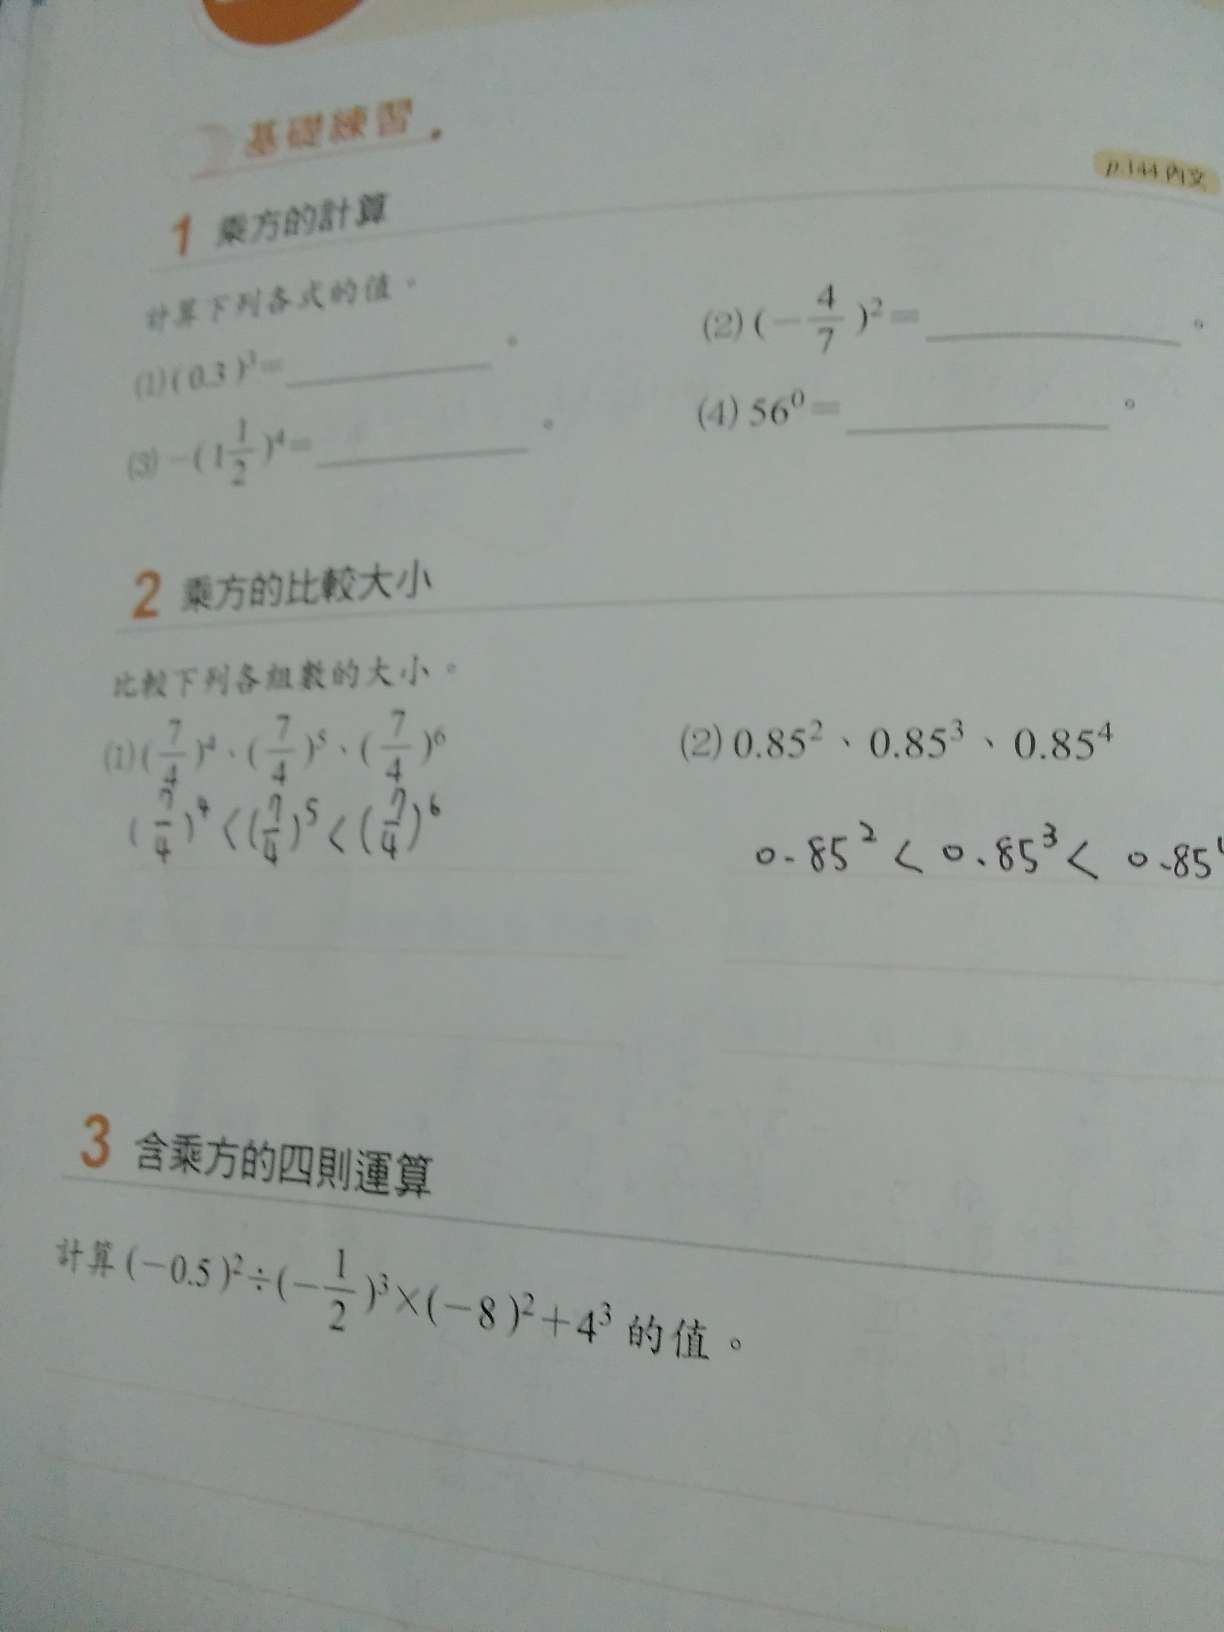 基礎練習
p.144 內文
1 乘方的計算
計算下列各式的值。
(1) (0.3)³=＿＿＿。 (2) (−4/7)²=＿＿＿。
(3) −(1 1/2)⁴=＿＿＿。 (4) 56⁰=＿＿＿。
2 乘方的比較大小
比較下列各組數的大小。
(1) (7/4)⁴、(7/4)⁵、(7/4)⁶ (2) 0.85²、0.85³、0.85⁴
(7/4)⁴<(7/4)⁵<(7/4)⁶ 0.85²<0.85³<0.85
3 含乘方的四則運算
計算 (−0.5)²÷(−1/2)³×(−8)²+4³ 的值。